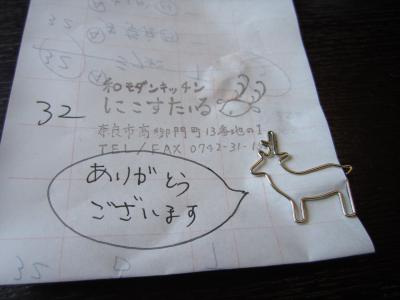 和モダンキッチン
にこすたいる
32
奈良市高御門町13番地の1
TEL/FAX 0742-31-
ありがとう
ございます
35